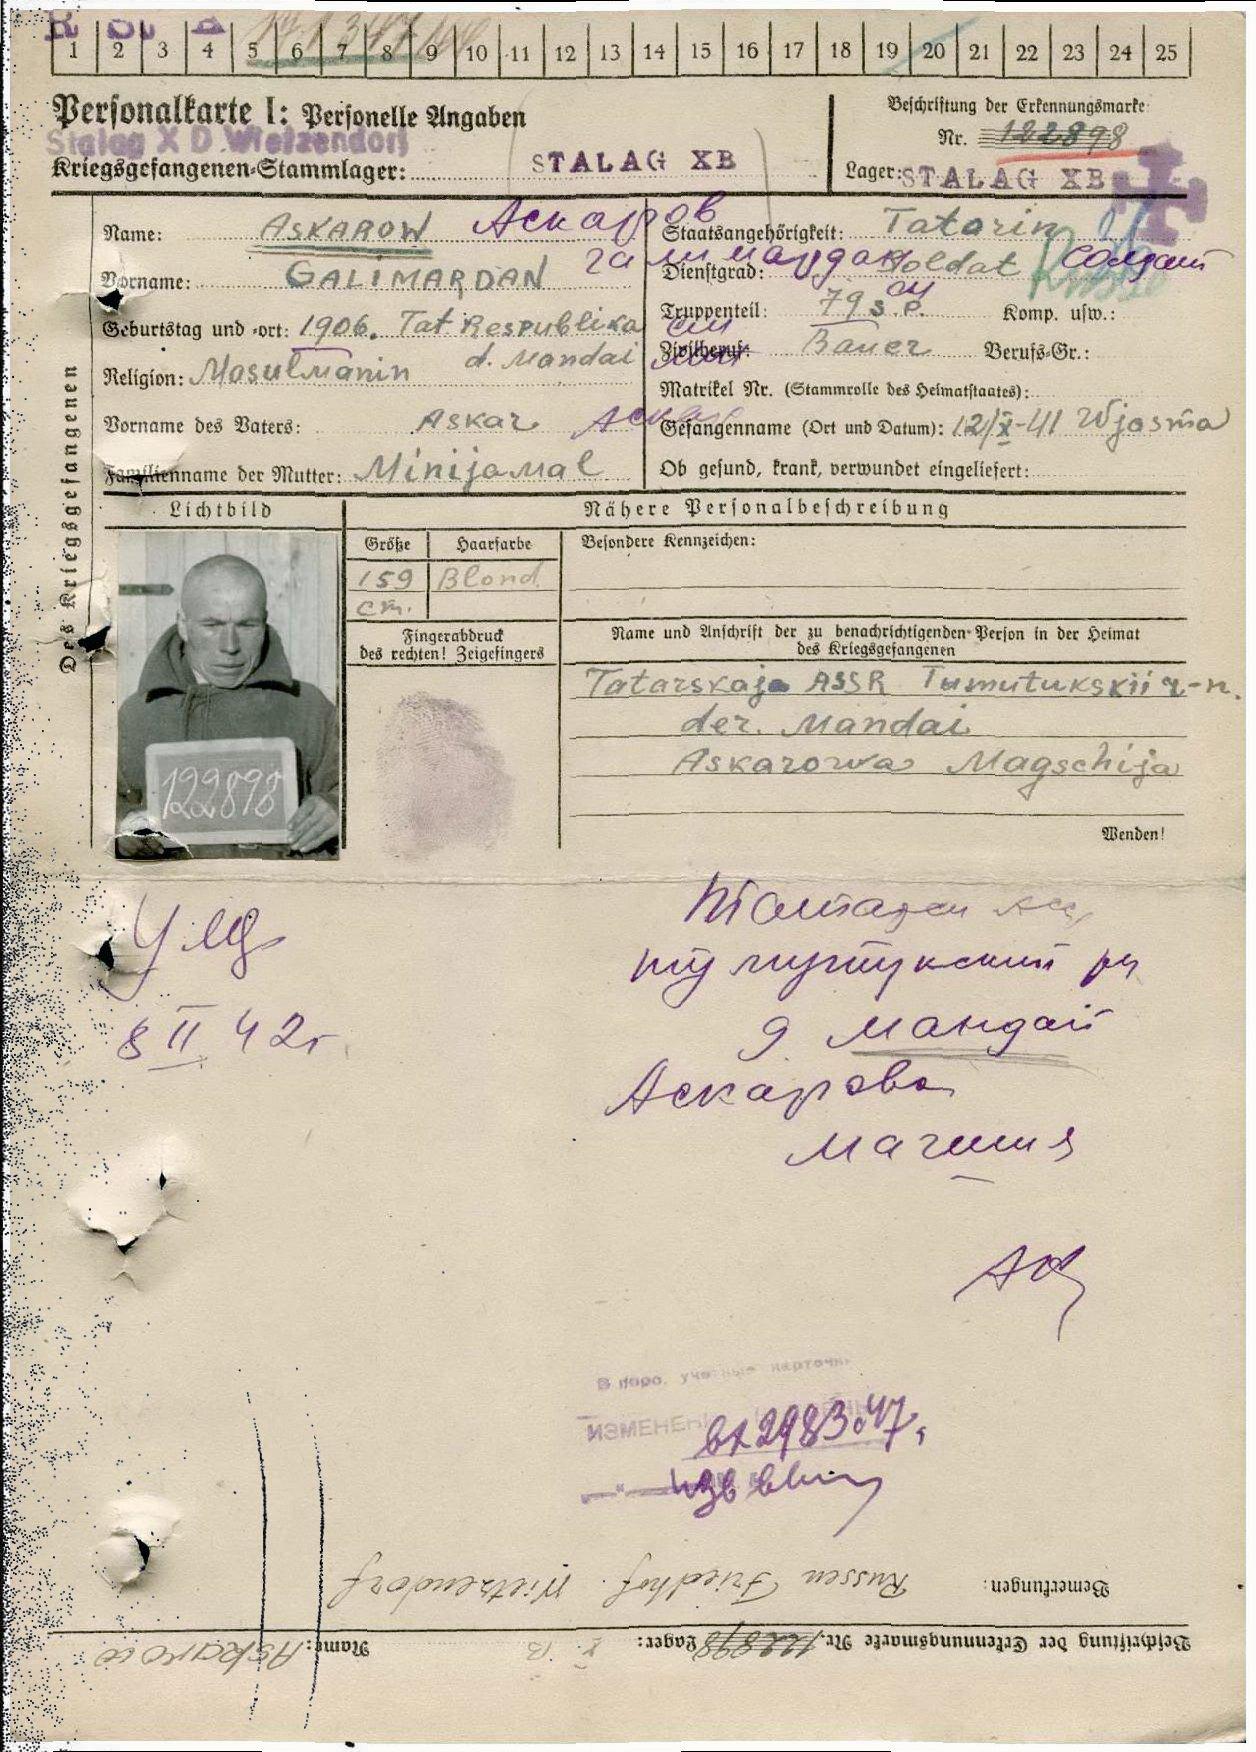 1 2 3 4 5 6 7 8 9 10 11 12 13 14 15 16 17 18 19 20 21 22 23 24 25
Personalkarte I: Personelle Angaben
Stalag X D Wietzendorf
Kriegsgefangenen-Stammlager: STALAG XB
Beschriftung der Erkennungsmarke
Nr. 122898
Lager: STALAG XB
Des Kriegsgefangenen
Name: ASKAROW Аскаров
Vorname: GALIMARDAN галимардан
Geburtstag und -ort: 1906. Tat Respublika
d. Mandai
Religion: Mosulmanin
Vorname des Vaters: Askar
Familienname der Mutter: Minijamal
Staatsangehörigkeit: Tatarin
Dienstgrad: Soldat Солдат
Truppenteil: 79 s.p. Komp. usw.:
Zivilberuf: Bauer Berufs-Gr.:
Matrikel Nr. (Stammrolle des Heimatstaates):
Gefangenname (Ort und Datum): 12/X-41 Wjasma
Ob gesund, krank, verwundet eingeliefert:
Lichtbild
Nähere Personalbeschreibung
Größe Haarfarbe Besondere Kennzeichen:
159 Blond
cm.
Fingerabdruck
des rechten! Zeigefingers
Name und Anschrift der zu benachrichtigenden Person in der Heimat
des Kriegsgefangenen
Tatarskaja ASSR Tumutukskii r-n.
der. Mandai
Askarowa Magschija
122898
Wenden!
8 II 42г
тумутукский рн
д Мандай
Аскарова
Изменен
вх 2983.47г
Bemerkungen: Russen Friedhof. Wietzendorf
Beschriftung der Erkennungsmarke Nr. 122898 Lager: X B Name: Askarow